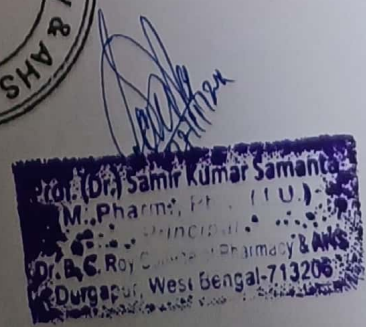 & AHS
Prof. (Dr.) Samir Kumar Samanta
M. Pharm., Ph. (J U.)
Principal
Dr. B. C. Roy College of Pharmacy & AHS
Durgapur, West Bengal-713206